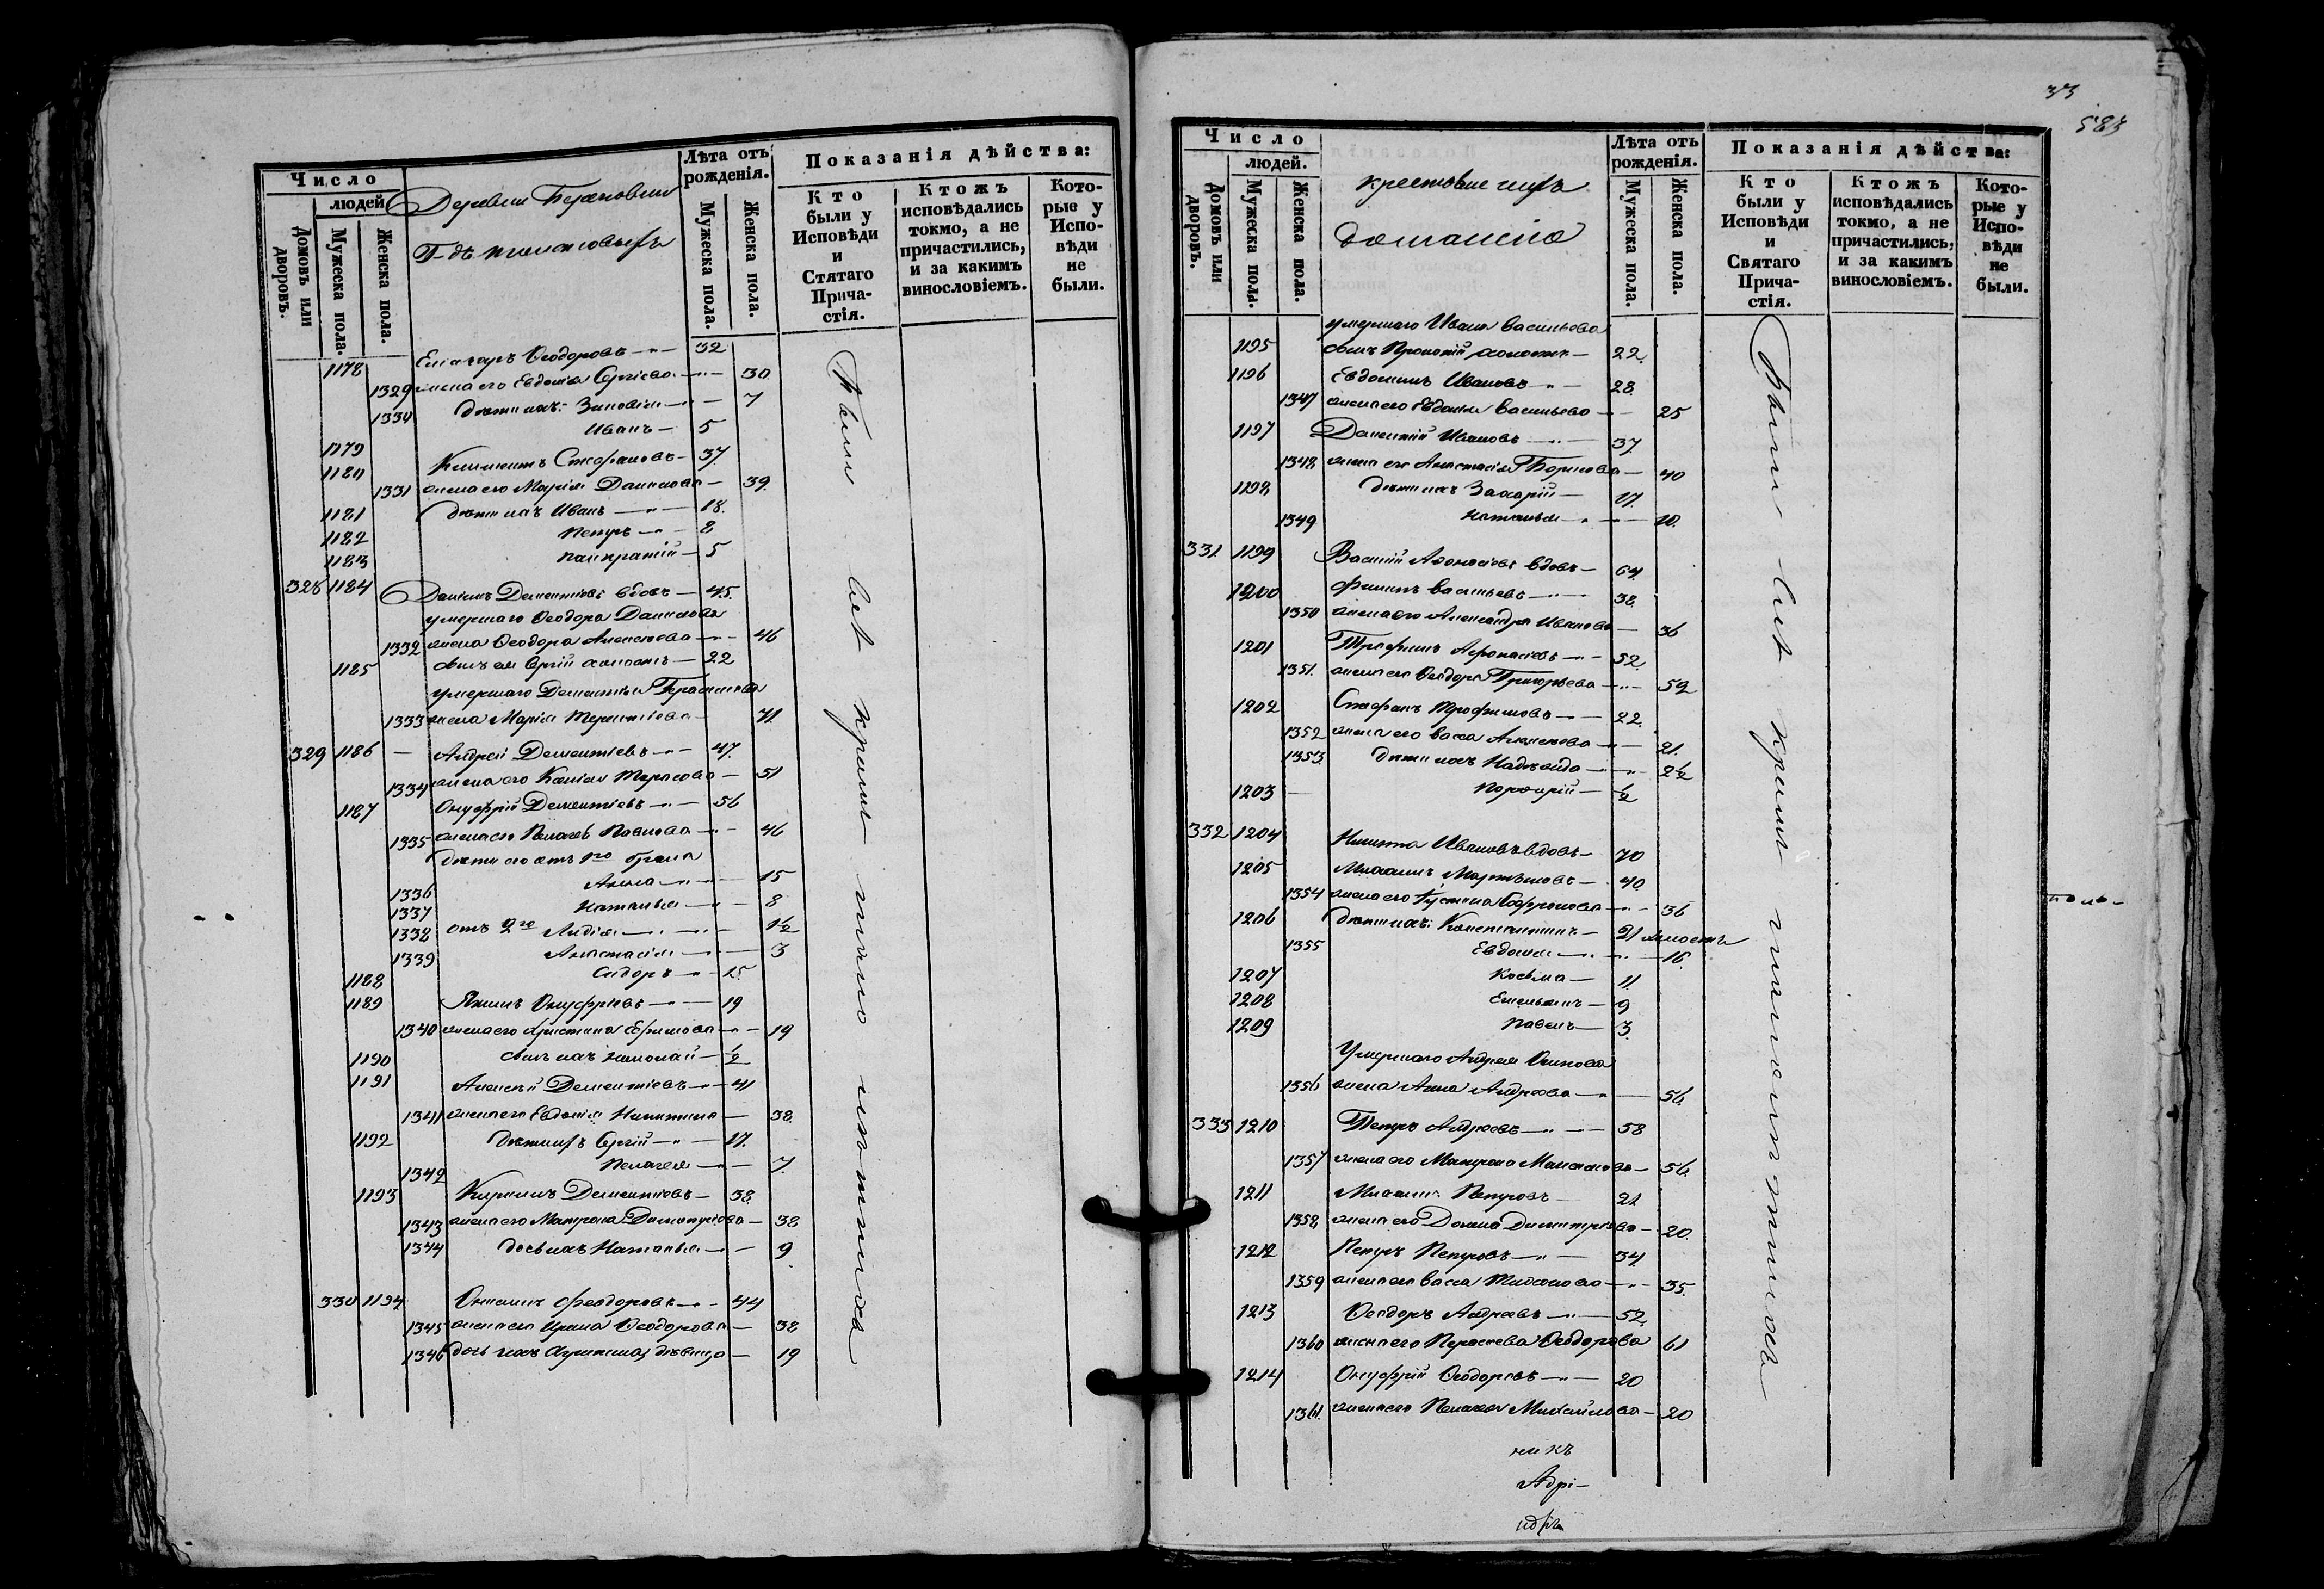 Число
людей
Домовъ или дворовъ.
Мужеска пола.
Женска пола.
Деревни
Г-дъ
Лѣта отъ рожденія.
Мужеска пола.
Женска пола.
Показанія дѣйства:
Кто были у Исповѣди и Стятаго Прича-стія.
Ктожъ исповѣдались токмо, а не причастились, и за какимъ винословіемъ.
Кото-рые у Испо-вѣди не были.
1178 Ѳеодоровъ 32
1329 жена его Евдокія Сергіева 30
1330 дѣти ихъ: Зиновія 7
1179 Иванъ 5
1180 Климентъ Стефановъ 37
1331 жена его Марія Данилова 39
1181 дѣти ихъ Иванъ 18
1182 Петръ 8
1183 Панкратій 5
328 1184 Даніилъ Дементіевъ вдовъ 45
умершаго Ѳеодора Данилова
1332 жена Ѳеодора Алексѣева 46
1185 сынъ ея Сергій холостъ 22
умершаго Дементія Герасимова
1333 жена Марія Терентіева 71
329 1186 Андрей Дементіевъ 47
1334 жена его Тарасова 51
1187 Онуфрій Дементіевъ 56
1335 жена его Пелагея Павлова 46
дѣти его отъ 1го брака
1336 Анна 15
1337 Наталья 8
1338 отъ 2го Лидія 1½
1339 Анастасія 3
1188 Сидоръ 15
1189 Якимъ Онуфріевъ 19
1340 жена его Христина Ефимова 19
1190 сынъ ихъ Николай ½
1191 Алексѣй Дементіевъ 41
1341 жена его Евдокія Никитина 38
1192 дѣти ихъ Сергій 17
1342 Пелагея 7
1193 Кирилъ Дементіевъ 38
1343 жена его Матрона Димитріева 38
1344 дочь ихъ Наталья 9
330 1194 Ѳеодоровъ 44
1345 жена его Ирина Ѳеодорова 38
1346 дочь ихъ дѣвица 19
Были всѣ
33
583
Число
людей.
Домовъ или дворовъ.
Мужеска пола.
Женска пола.
крестьяне ихъ
Лѣта отъ рожденія.
Мужеска пола.
Женска пола.
Показанія дѣйства:
Кто были у Исповѣди и Святаго Прича-стія.
Ктожъ исповѣдались токмо, а не причастились, и за какимъ винословіемъ.
Кото-рые у Испо-вѣди не были.
умершаго Ивана Васильева
1195 сынъ Прокопій холостъ 22
1196 Евдокимъ Ивановъ 28
1347 жена его Евдокія Васильева 25
1197 Дементій Ивановъ 37
1348 жена его Анастасія Борисова 40
1198 дѣти ихъ Захарій 17
1349 Наталья 10
331 1199 Василій Аѳонасіевъ вдовъ 64
1200 Филипъ Васильевъ 38
1350 жена его Александра Иванова 36
1201 Трофимъ Афонасіевъ 52
1351 жена его Ѳеодора Григорьева 52
1202 Стефанъ Трофимовъ 22
1352 жена его Васса Алексѣева 21
1353 дѣти ихъ Надежда 2½
1203 Порфирій ½
332 1204 Никита Ивановъ вдовъ 70
1205 Михаилъ Мартыновъ 40
1354 жена его Іустина Сафронова 36
1206 дѣти ихъ: Константинъ 21 холостъ
1355 Евдокія 16
1207 Косьма 11
1208 Емельянъ 9
1209 Павелъ 3
Умершаго Андрея Осипова
1356 жена Анна Андреева 56
333 1210 Петръ Андреевъ 58
1357 жена его Матрона Максимова 56
1211 Михаилъ Петровъ 21
1358 жена его Домна Димитріева 20
1212 Петръ Петровъ 34
1359 жена его Васса Тихонова 35
1213 Ѳеодоръ Андреевъ 52
1360 жена его Параскева Ѳеодорова 61
1214 Онуфрій Ѳеодоровъ 20
1361 жена его Пелагея Михайлова 20
никъ
Адрі-
Были всѣ